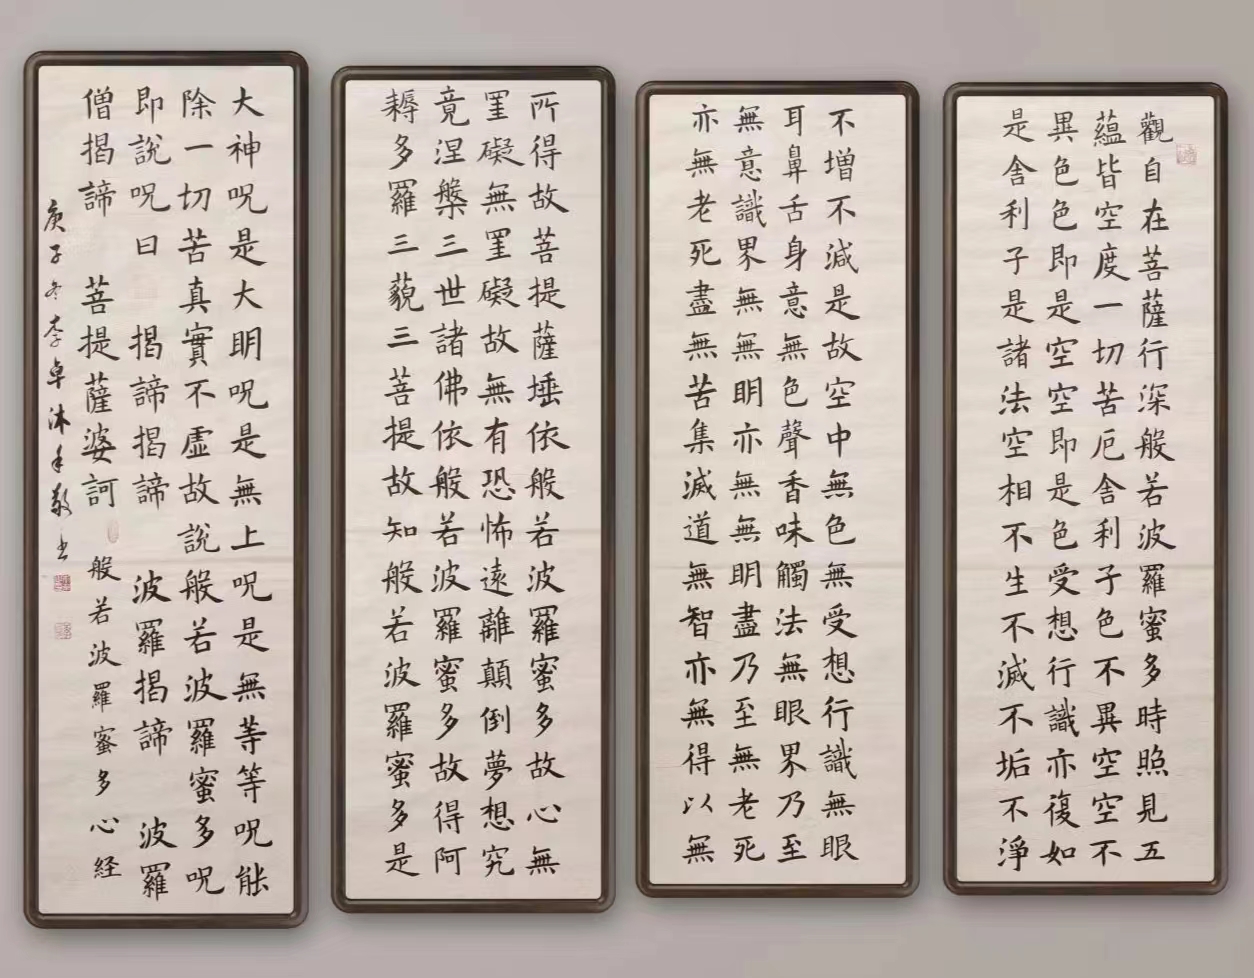 觀自在菩薩行深般若波羅蜜多時照見五
蘊皆空度一切苦厄舍利子色不異空空不
異色色即是空空即是色受想行識亦復如
是舍利子是諸法空相不生不滅不垢不淨
不增不減是故空中無色無受想行識無眼
耳鼻舌身意無色聲香味觸法無眼界乃至
無意識界無無明亦無無明盡乃至無老死
亦無老死盡無苦集滅道無智亦無得以無
所得故菩提薩埵依般若波羅蜜多故心無
罣礙無罣礙故無有恐怖遠離顛倒夢想究
竟涅槃三世諸佛依般若波羅蜜多故得阿
耨多羅三藐三菩提故知般若波羅蜜多是
大神呪是大明呪是無上呪是無等等呪能
除一切苦真實不虛故說般若波羅蜜多呪
即說呪曰 揭諦揭諦 波羅揭諦 波羅
僧揭諦 菩提薩婆訶 般若波羅蜜多心経
庚子冬李卓沐手敬书